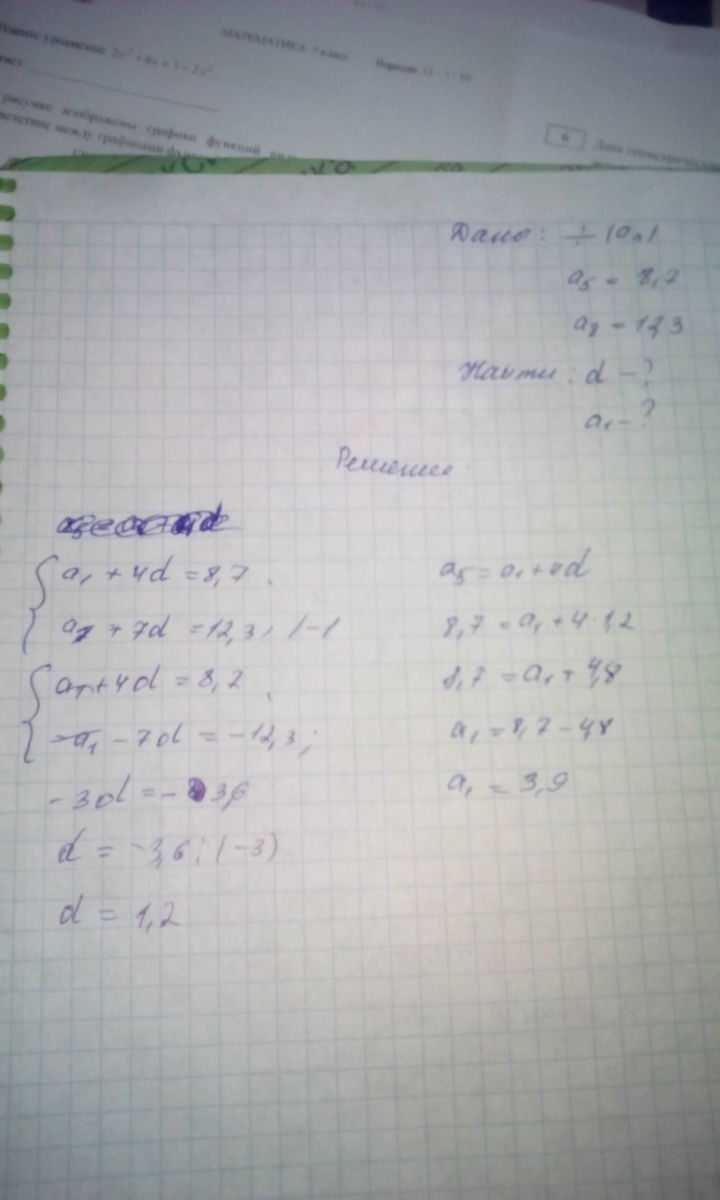 МАТЕМАТИКА 9 класс
Решите уравнение
рисунке изображены графики функций
между графиками
6
Дана геометрическая
Дано: ÷ (aₙ)
a₅ = 8,7
a₈ = 12,3
Найти: d - ?
a₁ - ?
Решение
a₁ + 4d = 8,7
a₁ + 7d = 12,3 / -1
a₁ + 4d = 8,7
-a₁ - 7d = -12,3;
-3d = -3,6
d = -3,6 : (-3)
d = 1,2
a₅ = a₁ + 4d
8,7 = a₁ + 4·1,2
8,7 = a₁ + 4,8
a₁ = 8,7 - 4,8
a₁ = 3,9